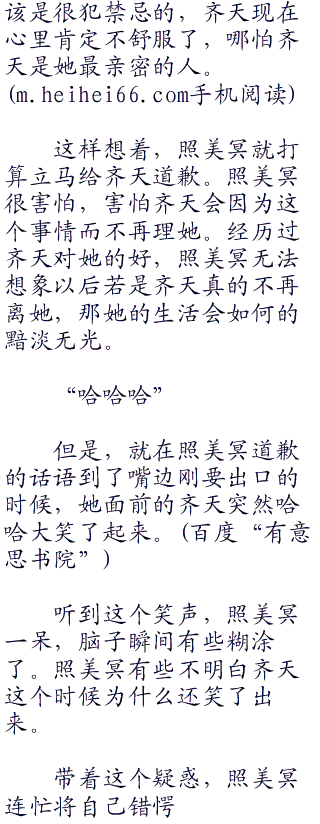 该是很犯禁忌的，齐天现在
心里肯定不舒服了，哪怕齐
天是她最亲密的人。
(m.heihei66.com手机阅读)
这样想着，照美冥就打
算立马给齐天道歉。照美冥
很害怕，害怕齐天会因为这
个事情而不再理她。经历过
齐天对她的好，照美冥无法
想象以后若是齐天真的不再
离她，那她的生活会如何的
黯淡无光。
“哈哈哈”
但是，就在照美冥道歉
的话语到了嘴边刚要出口的
时候，她面前的齐天突然哈
哈大笑了起来。(百度“有意
思书院”)
听到这个笑声，照美冥
一呆，脑子瞬间有些糊涂
了。照美冥有些不明白齐天
这个时候为什么还笑了出
来。
带着这个疑惑，照美冥
连忙将自己错愕